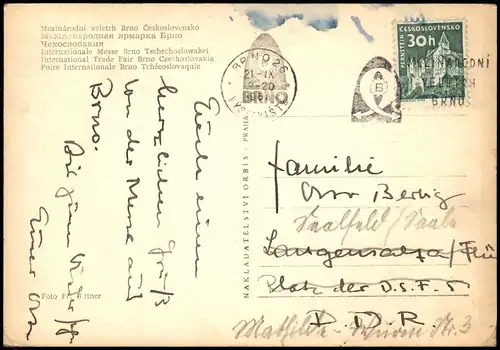 Mezinárodní veletrh Brno Československo
Международная ярмарка Брно
Чехословакия
Internationale Messe Brno Tschechoslowakei
International Trade Fair Brno Czechoslovakia
Foire Internationale Brno Tchécoslovaquie
Euch einen
herzlichen Gruß
von der Messe aus
Brno.
Bis zum Euer
Foto Fr. Bittner
NAKLADATELSTVÍ ORBIS - PRAHA
BRNO 26
21.-IX
9-20
BRNO
VÝSTAVIŠTĚ
BVV
MEZINÁRODNÍ
VELETRH
BRNO
ČESKOSLOVENSKO
30h
PERNŠTEJN
Familie
Saalfeld / Saale
Langensalza / Thü
Platz der D.S.F. 5
D D R
Mathilde-Wurm Str. 3